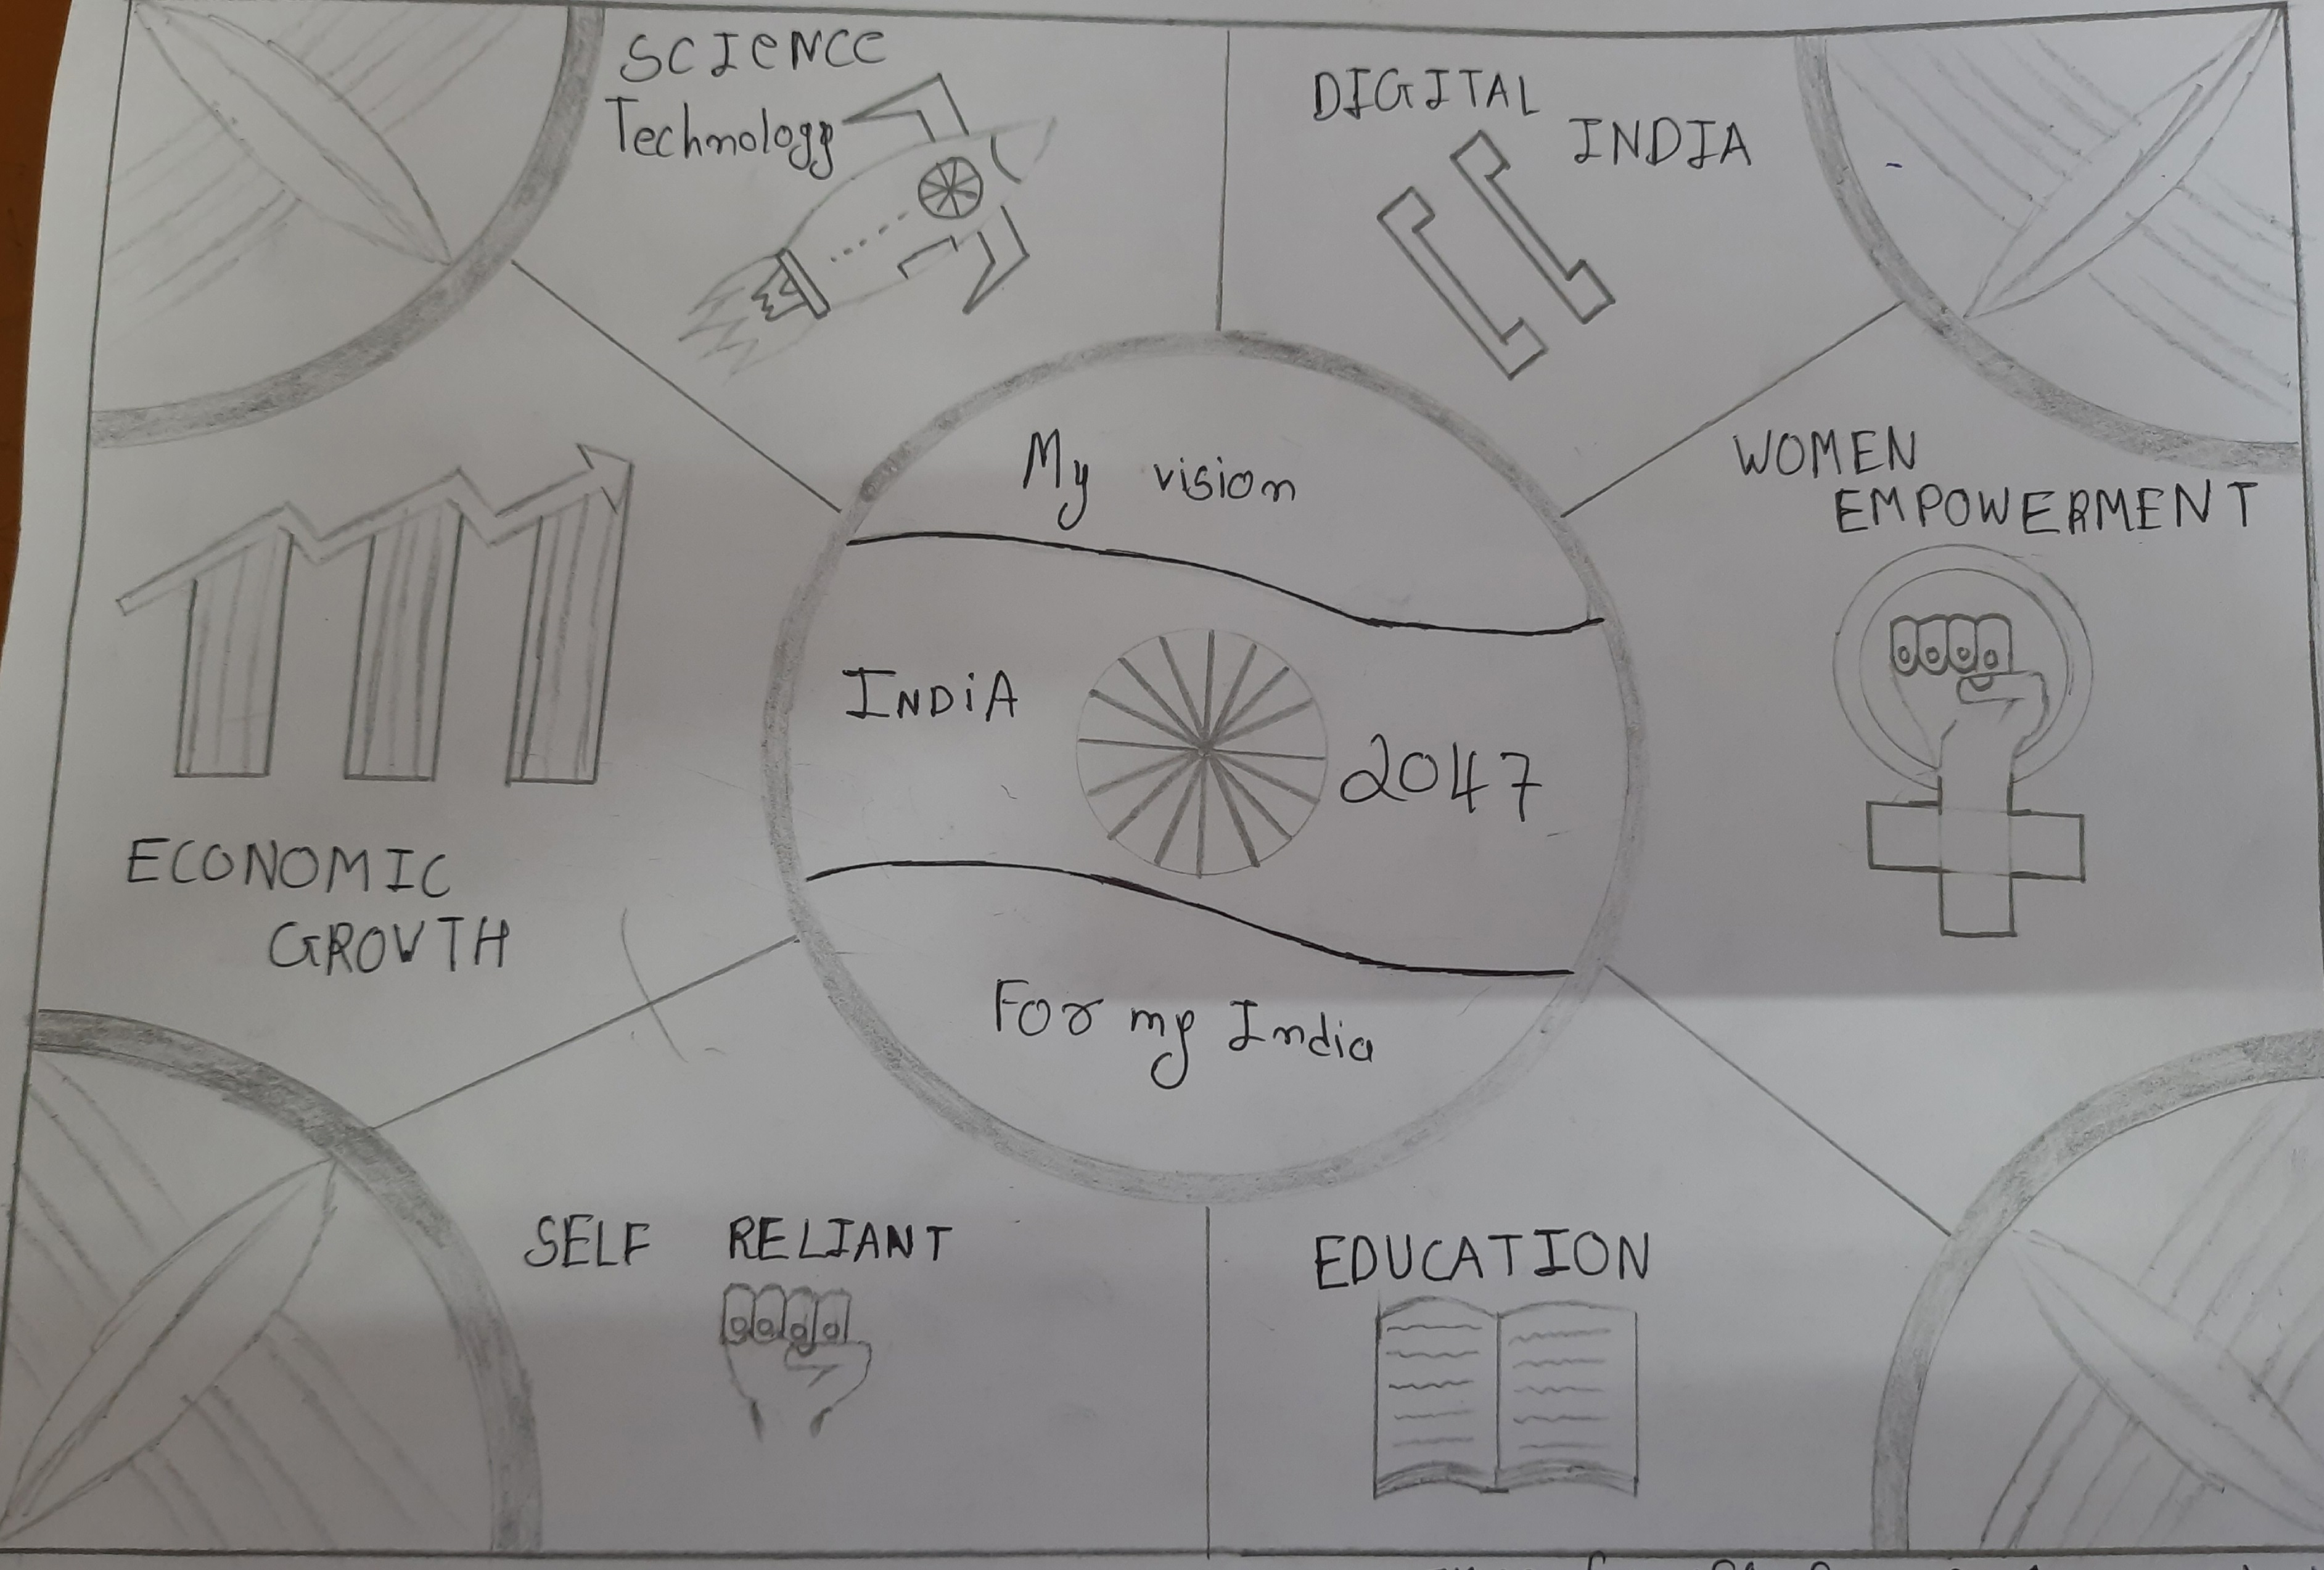 SCIENCE
Technology
DIGITAL
INDIA
My vision
WOMEN
EMPOWERMENT
INDiA
2047
ECONOMIC
GROWTH
For my India
SELF RELIANT
EDUCATION